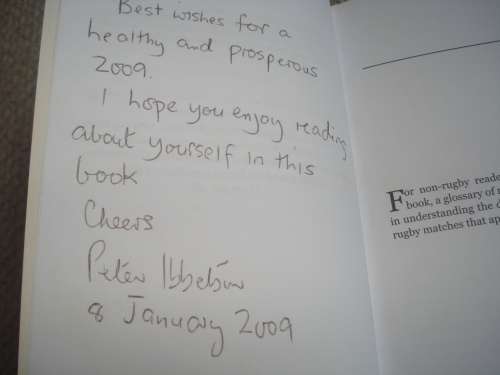 Best wishes for a
healthy and prosperous
2009.
I hope you enjoy reading
about yourself in this
book
Cheers
Peter Ibbetson
8 January 2009
For non-rugby reade
book, a glossary of
in understanding the
rugby matches that ap